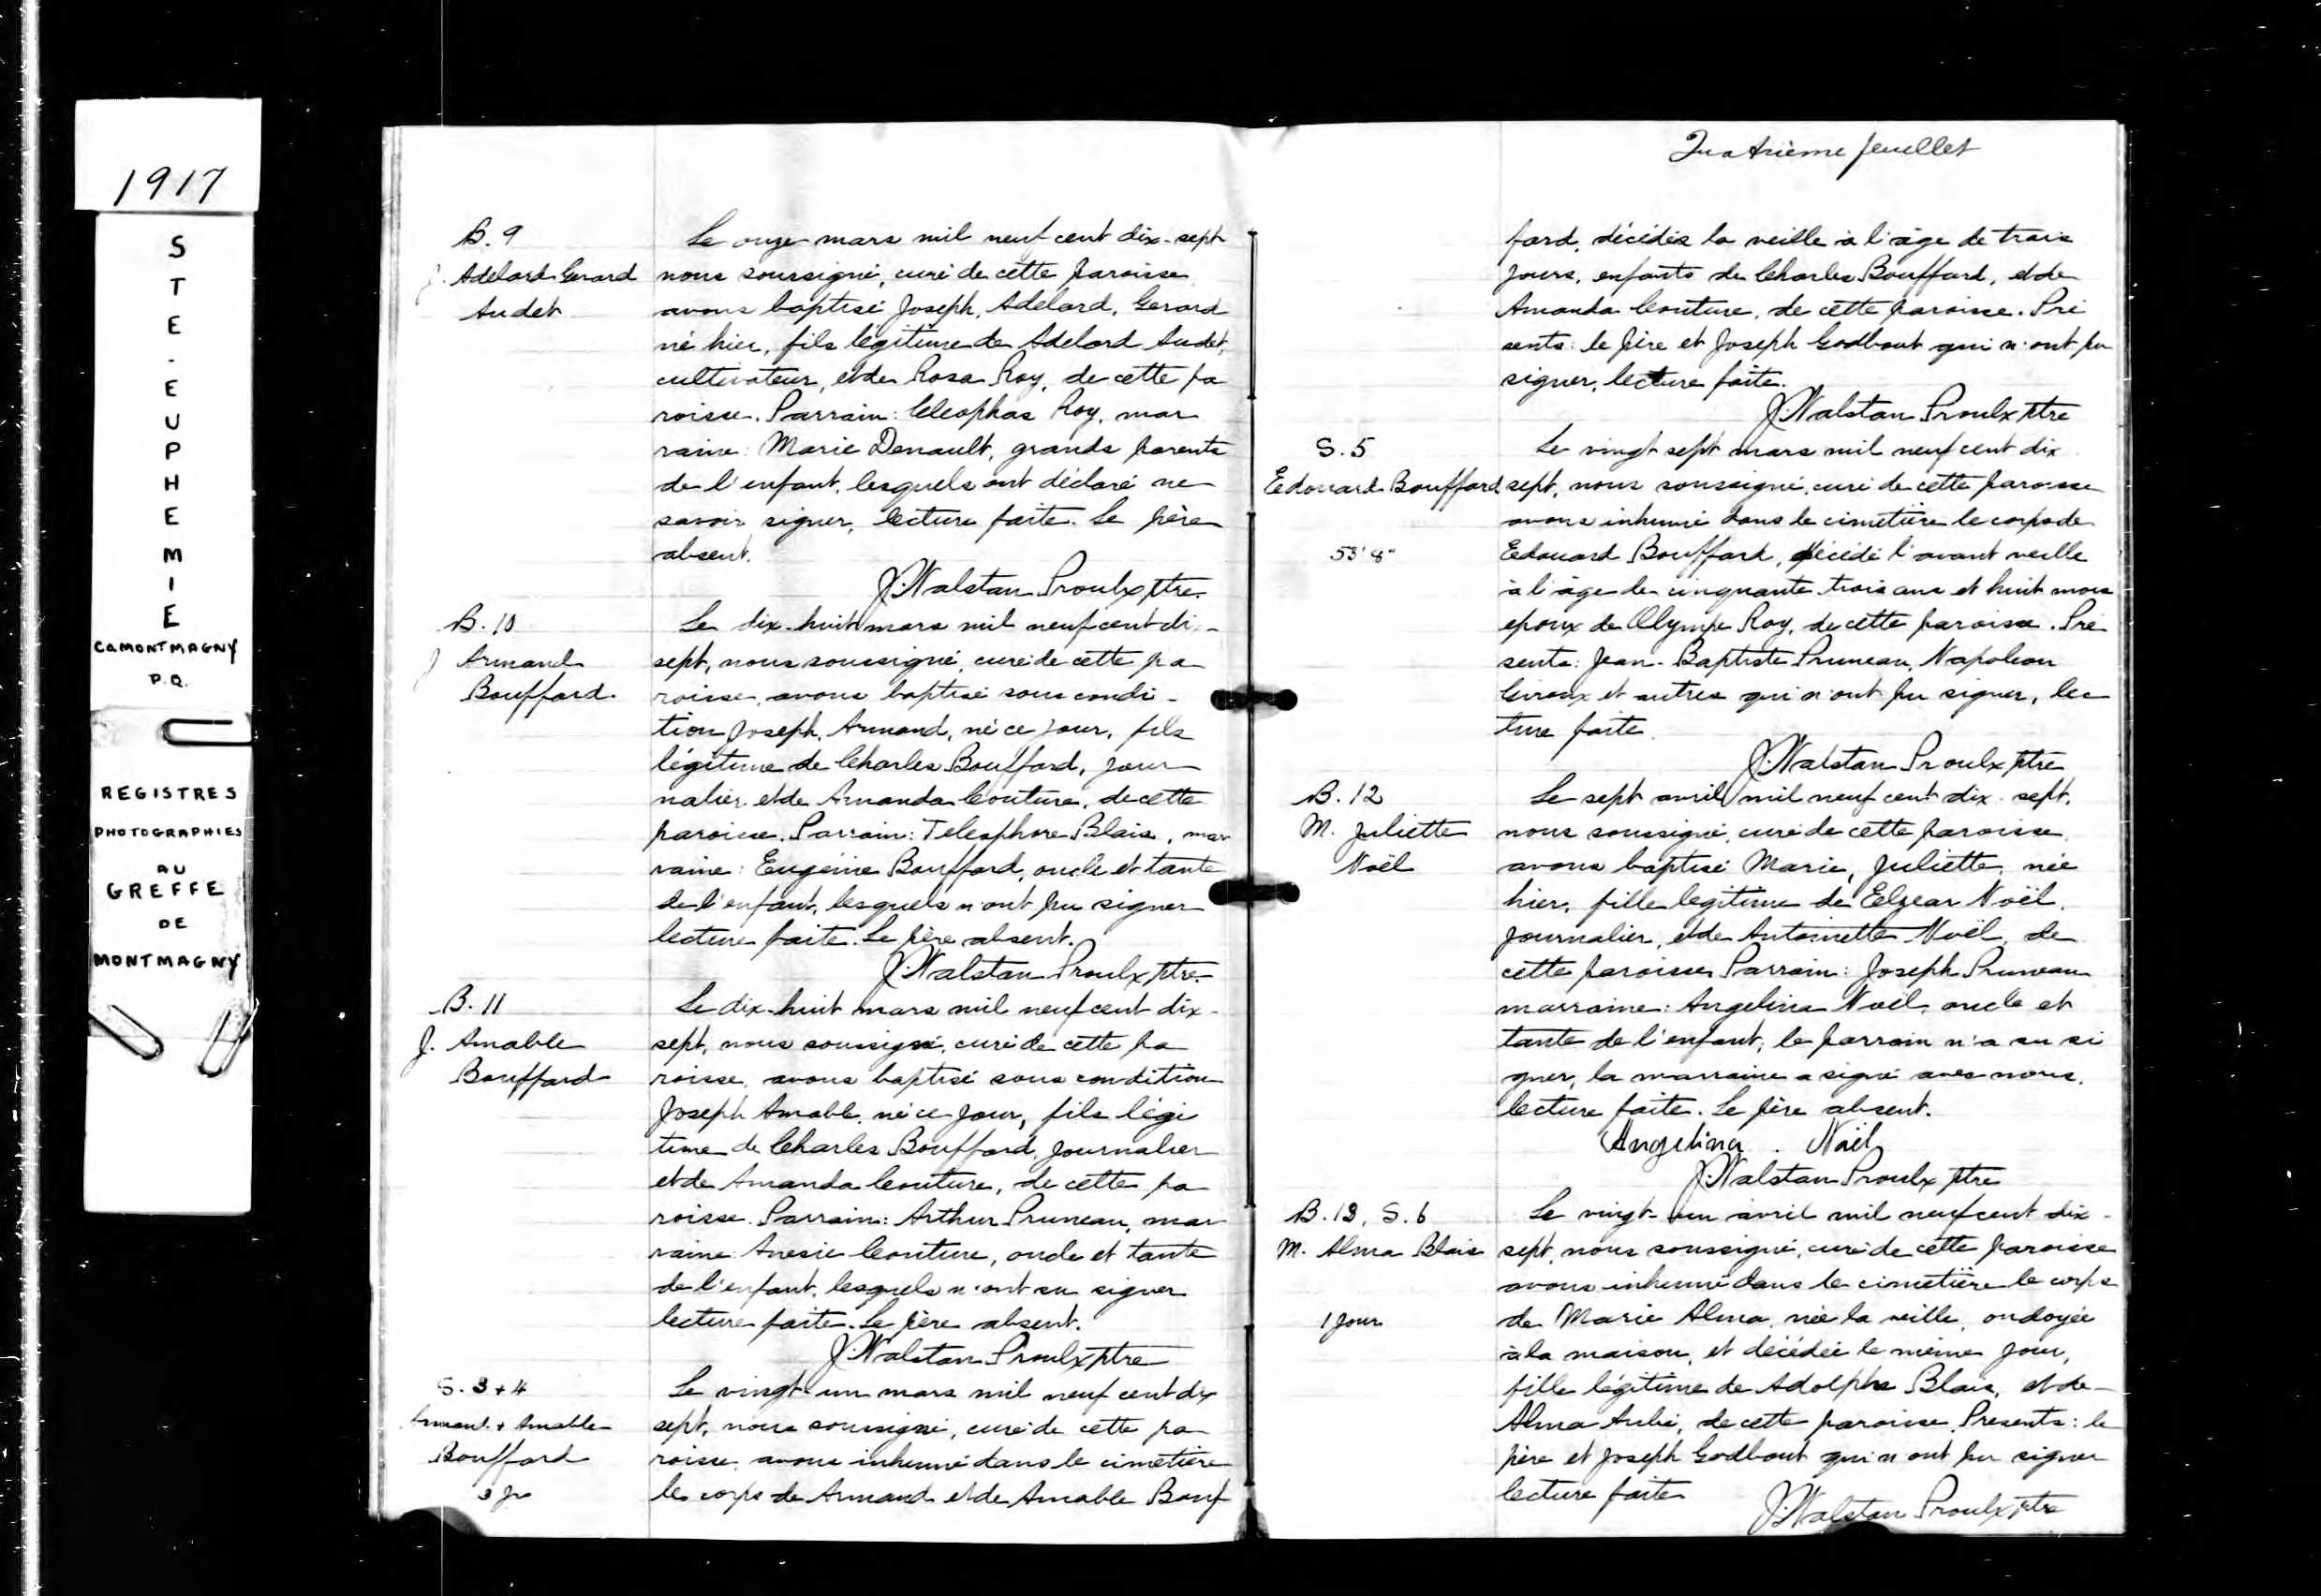 1917
STE-EUPHEMIE
Co MONTMAGNY
P.Q.
REGISTRES
PHOTOGRAPHIES
AU
GREFFE
DE
MONTMAGNY
B. 9
J. Adelard Gerard
Audet
Le onze mars mil neuf cent dix-sept
nous soussigné, curé de cette paroisse
avons baptisé Joseph, Adelard, Gerard
né hier, fils légitime de Adelard Audet,
cultivateur, et de Rosa Roy, de cette pa
roisse. Parrain: Cleophas Roy, mar
raine: Marie Denault, grands parents
de l'enfant, lesquels ont déclaré ne
savoir signer, lecture faite. Le père
absent.
J. Walstan Proulx ptre
B. 10
J Armand
Bouffard
Le dix-huit mars mil neuf cent dix-
sept, nous soussigné, curé de cette pa
roisse, avons baptisé sous condi-
tion Joseph, Armand, né ce jour, fils
légitime de Charles Bouffard, jour
nalier et de Amanda Couture, de cette
paroisse. Parrain: Telesphore Blais, mar
raine: Eugénie Bouffard, oncle et tante
de l'enfant, lesquels n'ont pu signer
lecture faite. Le père absent.
J. Walstan Proulx ptre
B. 11
J. Amable
Bouffard
Le dix-huit mars mil neuf cent dix-
sept, nous soussigné, curé de cette pa
roisse, avons baptisé sous condition
Joseph Amable, né ce jour, fils légi
time de Charles Bouffard, journalier
et de Amanda Couture, de cette pa
roisse. Parrain: Arthur Pruneau, mar
raine: Anesie Couture, oncle et tante
de l'enfant, lesquels n'ont su signer
lecture faite. Le père absent.
J. Walstan Proulx ptre
S. 3 + 4
Armand + Amable
Bouffard
3 jrs
Le vingt-un mars mil neuf cent dix
sept, nous soussigné, curé de cette pa
roisse, avons inhumé dans le cimetière
les corps de Armand et de Amable Bouf
Quatrième feuillet
fard, décédés la veille à l'âge de trois
jours, enfants de Charles Bouffard, et de
Amanda Couture, de cette paroisse. Pré
sents: le père et Joseph Godbout qui n'ont pu
signer, lecture faite.
J. Walstan Proulx ptre
S. 5
Edouard Bouffard
53' 8"
Le vingt sept mars mil neuf cent dix
sept, nous soussigné, curé de cette paroisse
avons inhumé dans le cimetière le corps de
Edouard Bouffard, décédé l'avant veille
à l'âge de cinquante trois ans et huit mois
epoux de Olympe Roy, de cette paroisse. Pré
sents: Jean-Baptiste Pruneau, Napoleon
Giroux et autres qui n'ont pu signer, lec
ture faite.
J. Walstan Proulx ptre
B. 12
M. Juliette
Noël
Le sept avril mil neuf cent dix-sept,
nous soussigné, curé de cette paroisse
avons baptisé Marie, Juliette, née
hier, fille legitime de Elzear Noël,
journalier, et de Antoinette Noël, de
cette paroisse. Parrain: Joseph Pruneau
marraine: Angelina Noël, oncle et
tante de l'enfant, le parrain n'a su si
gner, la marraine a signé avec nous,
lecture faite. Le père absent.
Angelina Noël
J. Walstan Proulx ptre
B. 13, S. 6
M. Alma Blais
1 jour
Le vingt-un avril mil neuf cent dix-
sept, nous soussigné, curé de cette paroisse
avons inhumé dans le cimetière le corps
de Marie Alma, née la veille, ondoyée
à la maison, et décédée le même jour,
fille légitime de Adolphe Blais, et de
Alma Aubé, de cette paroisse. Presents: le
père et Joseph Godbout qui n'ont pu signer
lecture faite
J. Walstan Proulx ptre